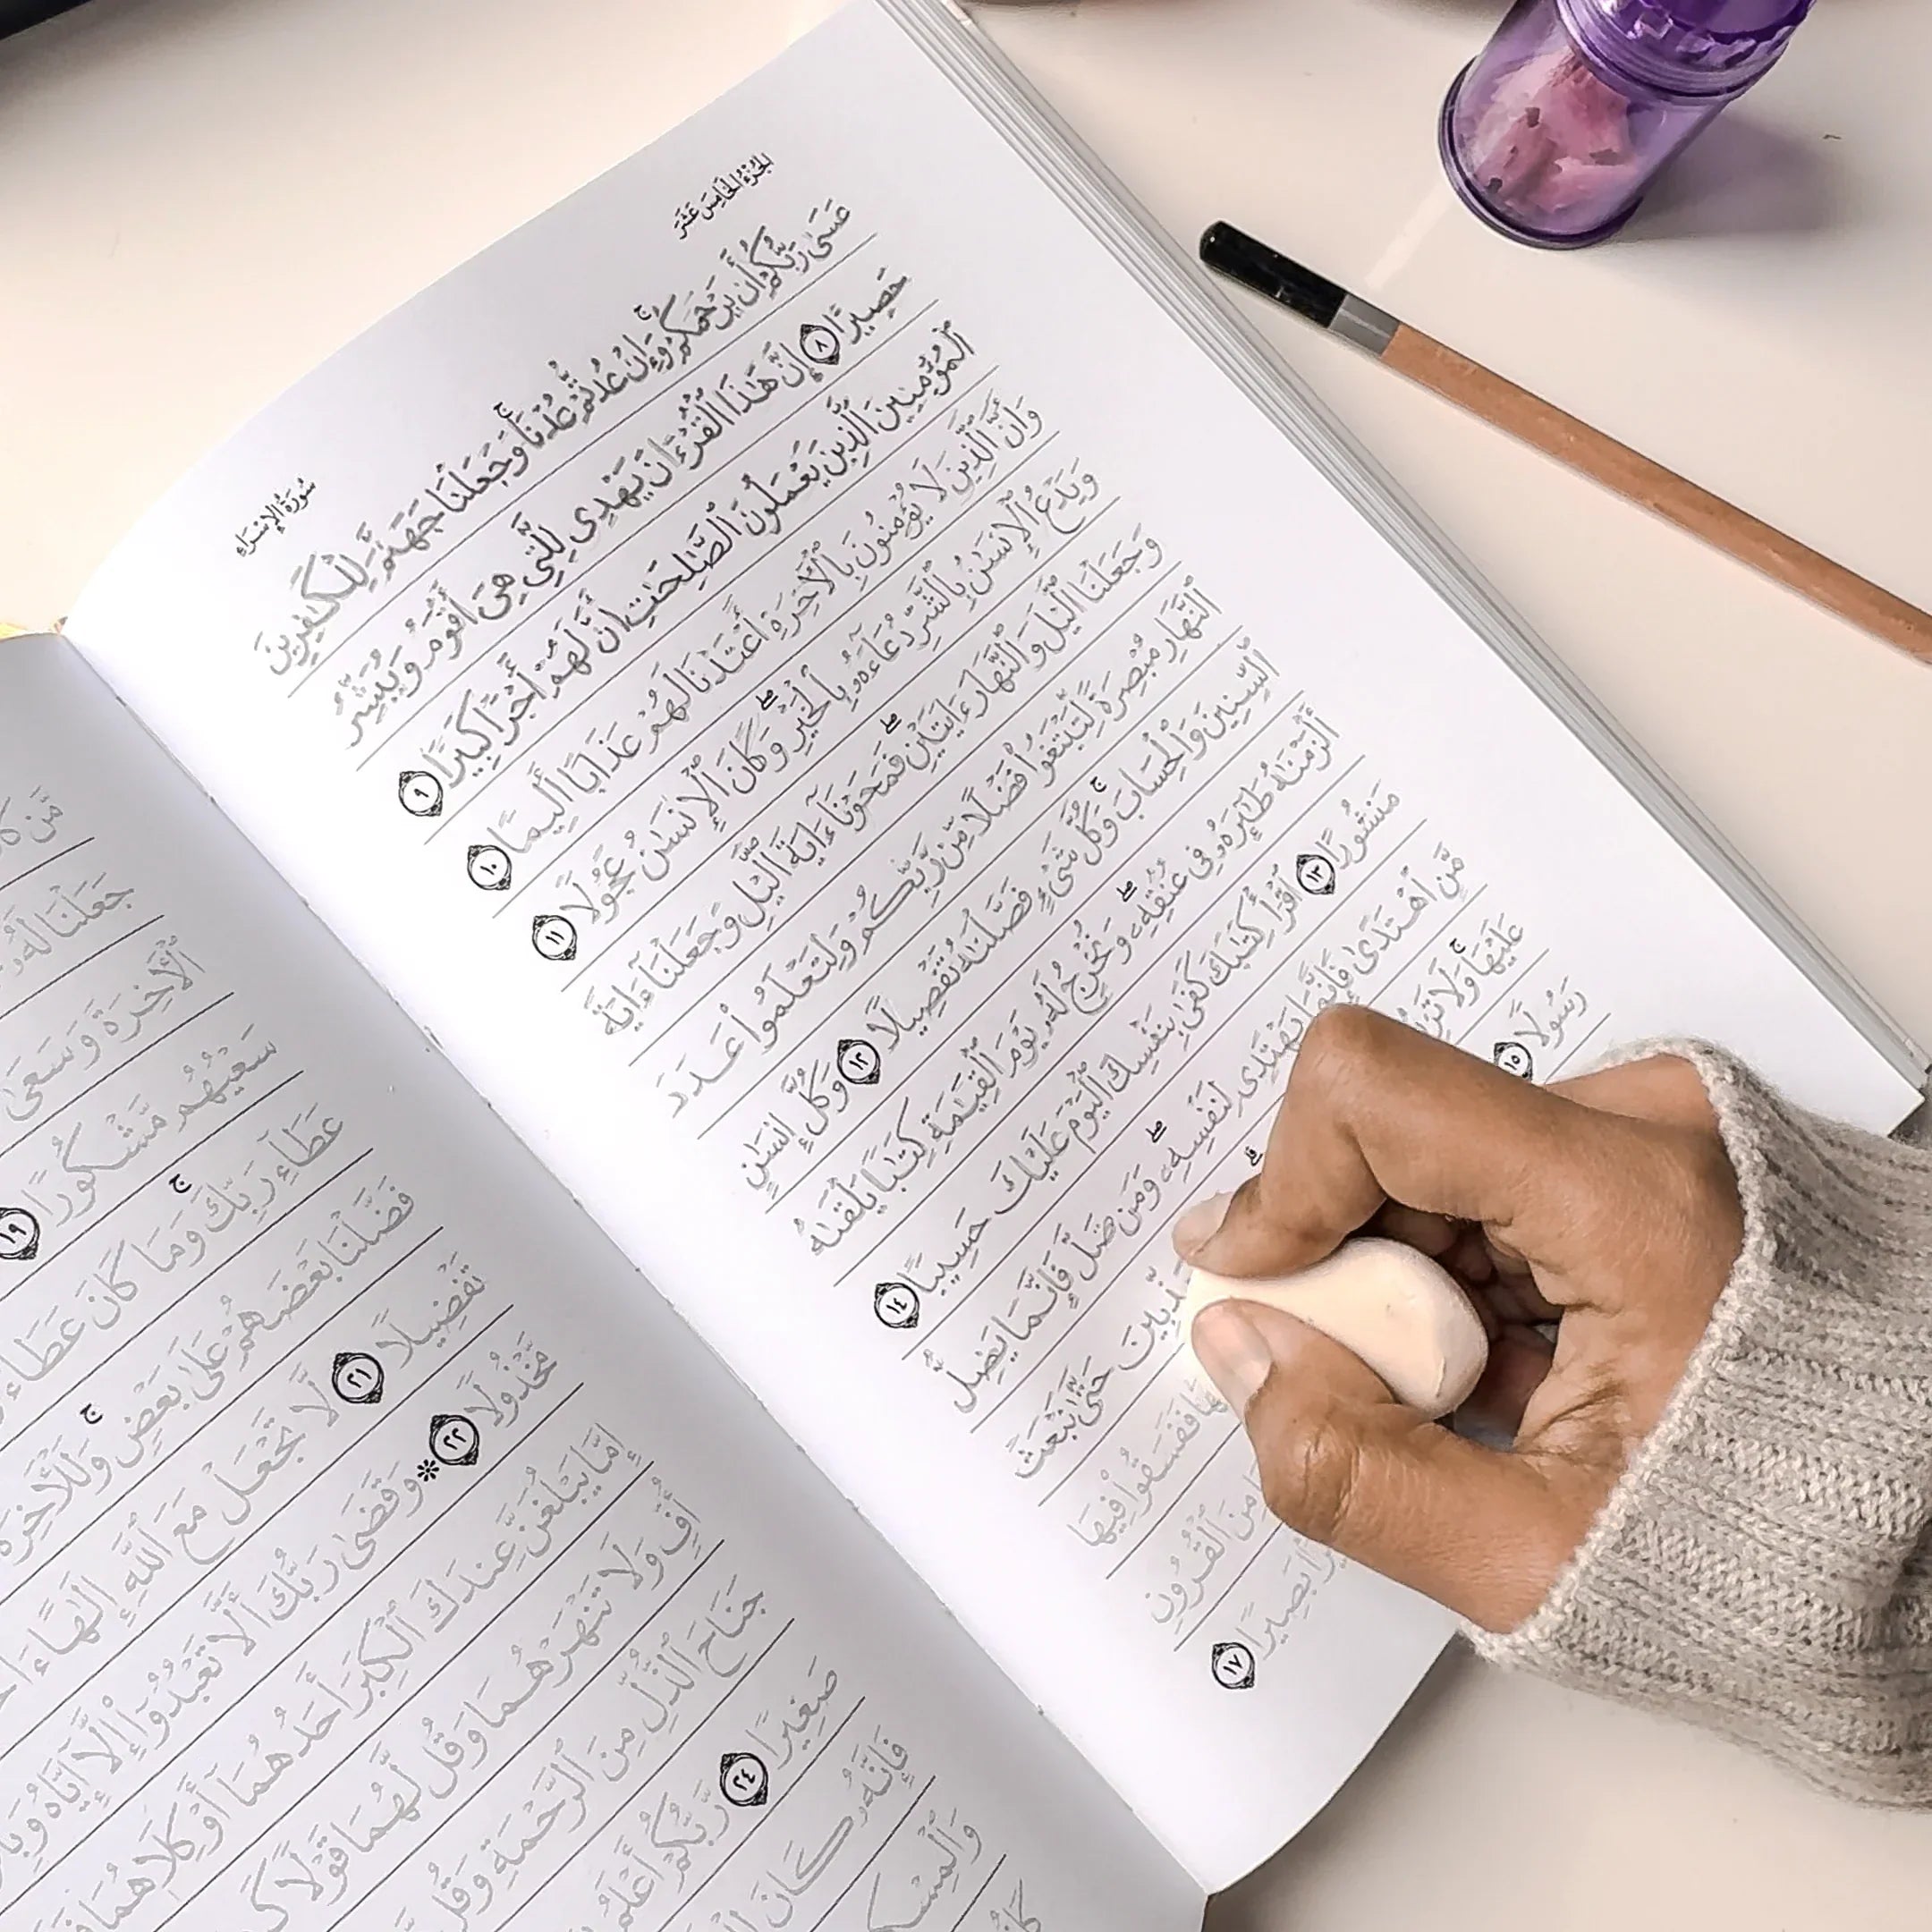 الجُزْءُ الخَامِسَ عَشَرَ سُورَةُ الإِسْرَاءِ
عَسَىٰ رَبُّكُمْ أَن يَرْحَمَكُمْ ۚ وَإِنْ عُدتُّمْ عُدْنَا ۚ وَجَعَلْنَا جَهَنَّمَ لِلْكَٰفِرِينَ
حَصِيرًا ٨ إِنَّ هَٰذَا ٱلْقُرْءَانَ يَهْدِى لِلَّتِى هِىَ أَقْوَمُ وَيُبَشِّرُ
ٱلْمُؤْمِنِينَ ٱلَّذِينَ يَعْمَلُونَ ٱلصَّٰلِحَٰتِ أَنَّ لَهُمْ أَجْرًا كَبِيرًا ٩
وَأَنَّ ٱلَّذِينَ لَا يُؤْمِنُونَ بِٱلْأَخِرَةِ أَعْتَدْنَا لَهُمْ عَذَابًا أَلِيمًا ١٠
وَيَدْعُ ٱلْإِنسَٰنُ بِٱلشَّرِّ دُعَآءَهُۥ بِٱلْخَيْرِ ۖ وَكَانَ ٱلْإِنسَٰنُ عَجُولًا ١١
وَجَعَلْنَا ٱلَّيْلَ وَٱلنَّهَارَ ءَايَتَيْنِ ۖ فَمَحَوْنَآ ءَايَةَ ٱلَّيْلِ وَجَعَلْنَآ ءَايَةَ
ٱلنَّهَارِ مُبْصِرَةً لِّتَبْتَغُوا۟ فَضْلًا مِّن رَّبِّكُمْ وَلِتَعْلَمُوا۟ عَدَدَ
ٱلسِّنِينَ وَٱلْحِسَابَ ۚ وَكُلَّ شَىْءٍ فَصَّلْنَٰهُ تَفْصِيلًا ١٢ وَكُلَّ إِنسَٰنٍ
أَلْزَمْنَٰهُ طَٰٓئِرَهُۥ فِى عُنُقِهِۦ ۖ وَنُخْرِجُ لَهُۥ يَوْمَ ٱلْقِيَٰمَةِ كِتَٰبًا يَلْقَىٰهُ
مَنشُورًا ١٣ ٱقْرَأْ كِتَٰبَكَ كَفَىٰ بِنَفْسِكَ ٱلْيَوْمَ عَلَيْكَ حَسِيبًا ١٤
مَّنِ ٱهْتَدَىٰ فَإِنَّمَا يَهْتَدِى لِنَفْسِهِۦ ۖ وَمَن ضَلَّ فَإِنَّمَا يَضِلُّ
عَلَيْهَا ۚ وَلَا تَزِرُ ۗ حَتَّىٰ نَبْعَثَ
رَسُولًا ١٥ فَفَسَقُوا۟ فِيهَا
مِنَ ٱلْقُرُونِ
بَصِيرًا ١٧
مَّن
جَعَلْنَا لَهُۥ
ٱلْأَخِرَةَ وَسَعَىٰ
سَعْيُهُم مَّشْكُورًا ١٩
عَطَآءِ رَبِّكَ ۚ وَمَا كَانَ عَطَآءُ
فَضَّلْنَا بَعْضَهُمْ عَلَىٰ بَعْضٍ ۚ وَلَلْأَخِرَةُ
تَفْضِيلًا ٢١ لَّا تَجْعَلْ مَعَ ٱللَّهِ إِلَٰهًا
مَّخْذُولًا ٢٢ * وَقَضَىٰ رَبُّكَ أَلَّا تَعْبُدُوٓا۟ إِلَّآ إِيَّاهُ
إِمَّا يَبْلُغَنَّ عِندَكَ ٱلْكِبَرَ أَحَدُهُمَآ أَوْ كِلَاهُمَا
أُفٍّ وَلَا تَنْهَرْهُمَا وَقُل لَّهُمَا قَوْلًا
جَنَاحَ ٱلذُّلِّ مِنَ ٱلرَّحْمَةِ وَقُل
صَغِيرًا ٢٤ رَّبُّكُمْ أَعْلَمُ
فَإِنَّهُۥ كَانَ